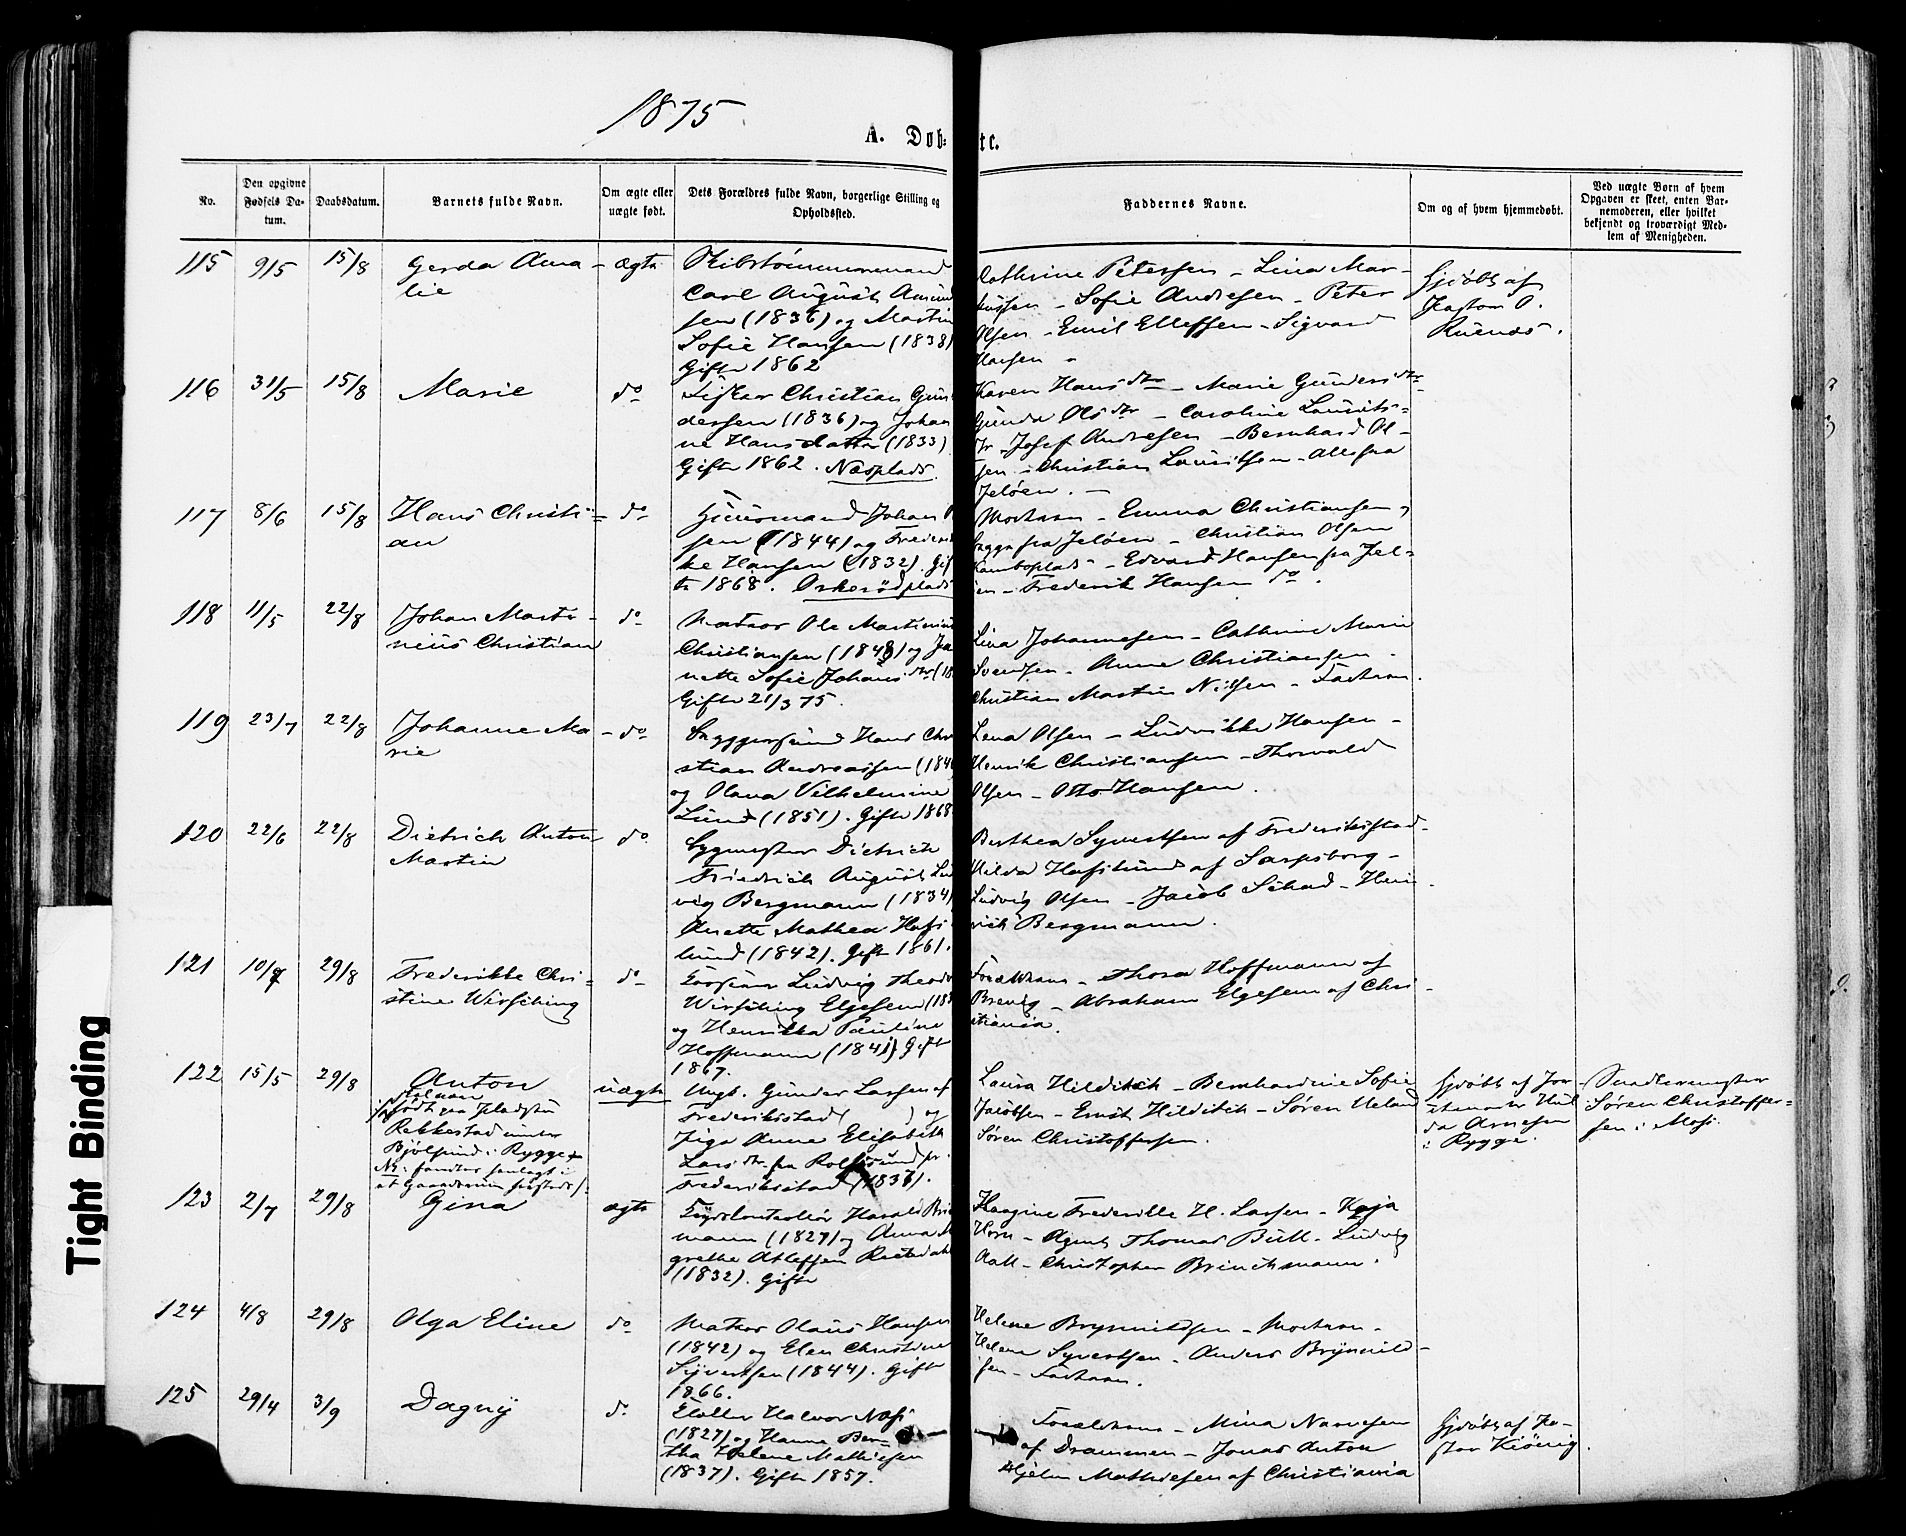 1875
A. Døb- tc.
No.
Den opgivne Fødsels Datum.
Daabsdatum.
Barnets fulde Navn.
Om ægte eller uægte født.
Dets Forældres fulde Navn, borgerlige Stilling og Opholdssted.
Faddernes Navne.
Om og af hvem hjemmedøbt.
Ved uægte Børn af hvem Opgaven er skeet, enten Barnemoderen, eller hvilket bekjendt og troværdigt Medlem af Menigheden.
115 9/5 15/8 Gerda Ama-
lie
ægte
Skibstømmermand
Carl August Amund
sen (1836) og Martin
Sofie Hansen (1838)
Gifte 1862
Kathrine Petersen - Lina Mar-
kussen - Sofie Andresen - Peter
Olsen - Emil Ellefsen - Sigvard
Hansen
Hjdøbt af
Pastor O.
116 31/5 15/8 Marie do
Fisker Christian Gun
dersen (1836) og Johan
ne Hansdatter (1833)
Gifte 1862. Næsplads.
Karen Hansdtr - Marie Gundersdtr
Gunda Olsdtr - Caroline Laurits-
dtr - Josef Andresen - Bernhard Ol-
sen - Christian Lauritsen - Alle fra
Jeløen.
117 8/6 15/8 Hans Christi-
an
do
Huusmand Johan
sen (1844) og Frederik
ke Hansen (1832). Gif
te 1868. Orkerødplads
Moderen - Emma Christiansen
Bygge fra Jeløen - Christian Olsen
Kamboplads - Edvard Hansen fra Jel-
øen - Frederik Hansen do.
118 11/5 22/8 Johan Marti-
nius Christian
do
Matros Ole Martinius
Christiansen (1848) og Ja
nette Sofie Johansdtr (18
Gifte 21/3 75.
Lina Johannesen - Cathrine Marie
Svendsen - Anne Christiansen -
Christian Martin Nilsen - Faderen.
119 23/7 22/8 Johanne Ma-
rie
do
Bryggersvend Hans Chri
stian Andreassen (184
og Olava Vilhelmine
Lund (1851). Gifte 1868
Lena Olsen - Ludvikke Hansen -
Henrik Christiansen - Thorvald
Olsen - Otto Hansen.
120 22/6 22/8 Dietrich Anton
Martin
do
Bygmester Dietrich
Friedrich August Lud
vig Bergmann (1834)
Anette Mathea Hafs
lund (1842). Gifte 1861.
Berthea Syvertsen af Frederikstad -
Hilda Hafslund af Sarpsborg -
Ludvig Olsen - Jacob Schad - Hein-
rich Bergmann.
121 10/7 29/8 Frederikke Chri-
stine Wirsching
do
Ludvig Theodor
Wirsching Elgesem (18
og Henrikka Pauline
Hoffmann (1841) Gift
1867.
Forældrene - Thora Hoffmann af
Brevig - Abraham Elgesem af Chri-
stiania.
122 15/5 29/8 Anton
født paa Pladsen
Rekkestad under
Bjølsund i Rygge
uægte
Ungk. Gunder Larsen af
Frederikstad ( ) og
Pige Anne Elisabeth
Larsdtr fra Rolfsund pr.
Frederikstad (1836).
Laura Hilditch - Bernhardine Sofie
Jacobsen - Ernst Hilditch - Søren Ueland
Søren Christoffersen.
Hjdøbt af Jor-
demoder Hul
da Arnesen
i Rygge.
Snedkermester
Søren Christoffer-
sen i Moss.
123 2/7 29/8 Gina ægte
Fyrkontrollør Harald Brin
mann (1827) og Anna M
grethe Atlefsen
(1832). Gifte
Haagine Frederikke H. Larsen - Kaja
Horn - Agent Thomas Bull - Ludvig
Aall - Christopher Brinchmann.
124 4/8 29/8 Olga Eline do
Matros Olaus Hansen
(1842) og Elen Christine
Syvertsen (1844). Gifte
1866.
Helene Brynildsen - Moderen -
Helene Syvertsen - Anders Brynild-
sen - Faderen.
125 29/4 3/9 Dagny do
Halvor Næss
(1827) og Hanna Ber-
tha Helene Mathiesen
(1837). Gifte 1857.
Forældrene - Mina Narvesen
af Drammen - Jonas Anton
Hjelm Mathiesen af Christiania
Hjdøbt af Pa-
stor Kiönig.
Tight Binding